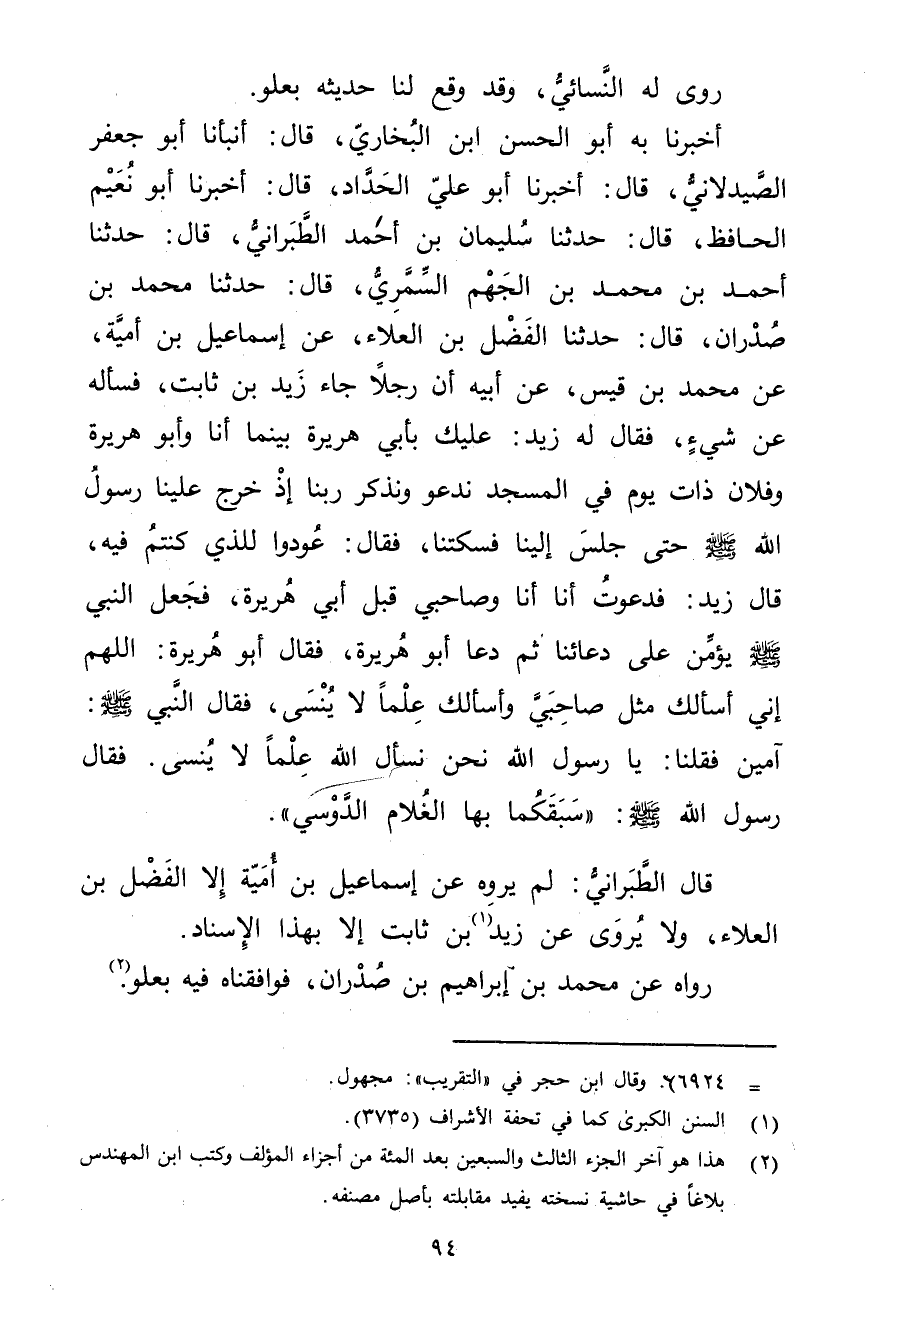 روى له النَّسائيُّ، وقد وقع لنا حديثه بعلو.
أخبرنا به أبو الحسن ابن البُخاريّ، قال: أنبأنا أبو جعفر
الصَّيدلانيُّ، قال: أخبرنا أبو عليّ الحَدَّاد، قال: أخبرنا أبو نُعَيْم
الحافظ، قال: حدثنا سُليمان بن أحمد الطَّبَرانيُّ، قال: حدثنا
أحمد بن محمد بن الجَهْم السِّمَّرِيُّ، قال: حدثنا محمد بن
صُدْران، قال: حدثنا الفَضْل بن العلاء، عن إسماعيل بن أميَّة،
عن محمد بن قيس، عن أبيه أن رجلًا جاء زَيد بن ثابت، فسأله
عن شيءٍ، فقال له زيد: عليك بأبي هريرة بينما أنا وأبو هريرة
وفلان ذات يوم في المسجد ندعو ونذكر ربنا إذْ خرج علينا رسولُ
الله ﷺ حتى جلسَ إلينا فسكتنا، فقال: عُودوا للذي كنتمُ فيه،
قال زيد: فدعوتُ أنا أنا وصاحبي قبل أبي هُريرة، فجَعل النبي
ﷺ يؤمِّن على دعائنا ثم دعا أبو هُريرة، فقال أبو هُريرة: اللهم
إني أسألك مثل صاحِبَيَّ وأسألك عِلْماً لا يُنْسَى، فقال النَّبي ﷺ:
آمين فقلنا: يا رسول الله نحن نسأل الله عِلْماً لا يُنسى. فقال
رسول الله ﷺ: «سَبَقَكُما بها الغُلام الدَّوْسي».
قال الطَّبَرانيُّ: لم يروِه عن إسماعيل بن أُمَيّة إلا الفَضْل بن
العلاء، ولا يُروَى عن زيد(١) بن ثابت إلا بهذا الإِسناد.
رواه عن محمد بن إبراهيم بن صُدْران، فوافقناه فيه بعلو.(٢)
= ٦٦٩٢٤. وقال ابن حجر في «التقريب»: مجهول.
(١) السنن الكبرىٰ كما في تحفة الأشراف (٣٧٣٥).
(٢) هذا هو آخر الجزء الثالث والسبعين بعد المئة من أجزاء المؤلف وكتب ابن المهندس
بلاغاً في حاشية نسخته يفيد مقابلته بأصل مصنفه.
٩٤